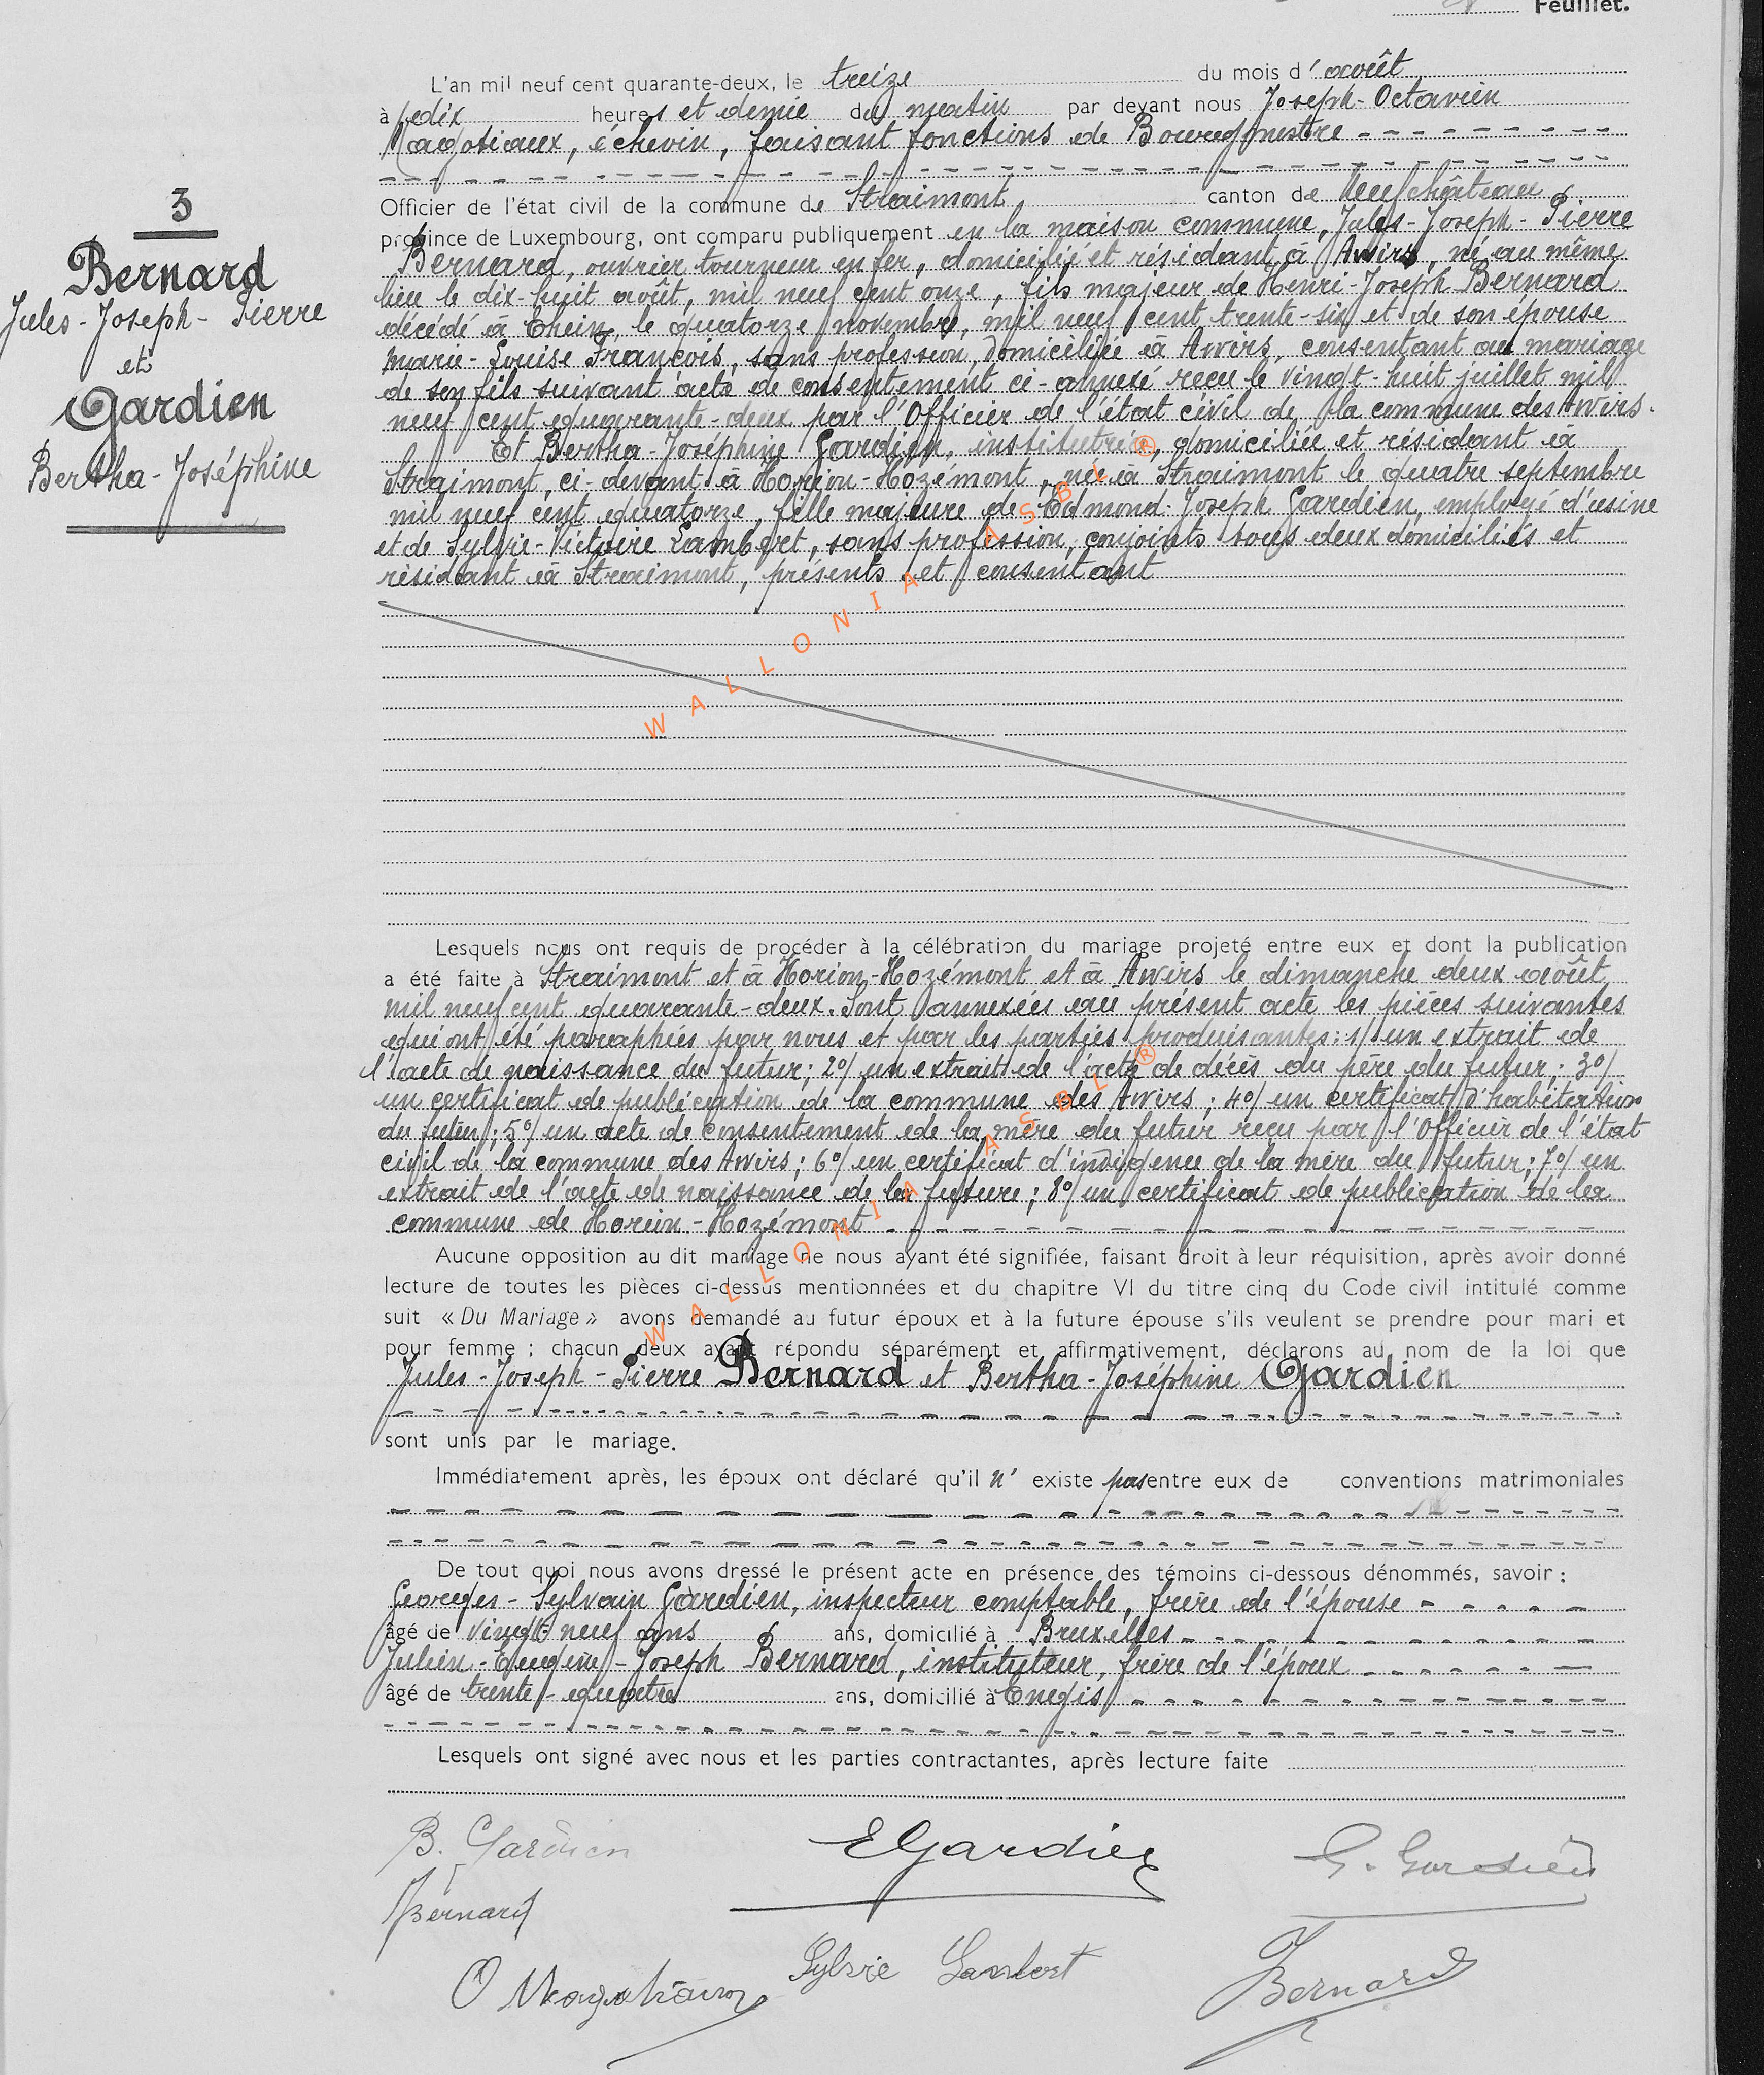 Feuillet.
L'an mil neuf cent quarante-deux, le treize du mois d'août
à dix heures et demie du matin par devant nous Joseph-Octavien
Magotiaux, échevin, faisant fonctions de Bourgmestre
Officier de l'état civil de la commune de Straimont canton de Neufchâteau
province de Luxembourg, ont comparu publiquement en la maison commune, Jules-Joseph-Pierre
Bernard, ouvrier tourneur en fer, domicilié et résidant à Awirs, né au même
lieu le dix-huit août, mil neuf cent onze, fils majeur de Henri-Joseph Bernard
décédé à le quatorze novembre, mil neuf cent trente-six et de son épouse
Marie-Louise François, sans profession, domiciliée à Awirs, consentant au mariage
de son fils suivant acte de consentement ci-annexé reçu le vingt-huit juillet mil
neuf cent quarante-deux par l'Officier de l'état civil de la commune des Awirs.
Et Bertha-Joséphine Gardien, institutrice, domiciliée et résidant à
Straimont, ci-devant à Horion-Hozémont, née à Straimont le quatre septembre
mil neuf cent quatorze, fille majeure de Edmond-Joseph Gardien, employé d'usine
et de Sylvie-Victoire Lambert, sans profession, conjoints tous deux domiciliés et
résidant à Straimont, présents et consentant
3
Bernard
Jules-Joseph-Pierre
et
Gardien
Bertha-Joséphine
WALLONIA ASBL ®
Lesquels nous ont requis de procéder à la célébration du mariage projeté entre eux et dont la publication
a été faite à Straimont et à Horion-Hozémont et à Awirs le dimanche deux août
mil neuf cent quarante-deux. Sont annexées au présent acte les pièces suivantes
qui ont été paraphées par nous et par les parties produisantes: 1/ un extrait de
l'acte de naissance du futur; 2°/ un extrait de l'acte de décès du père du futur; 3°/
un certificat de publication de la commune des Awirs; 4°/ un certificat d'habitation
du futur; 5°/ un acte de consentement de la mère du futur reçu par l'Officier de l'état
civil de la commune des Awirs; 6°/ un certificat d'indigence de la mère du futur; 7°/ un
extrait de l'acte de naissance de la future; 8°/ un certificat de publication de la
commune de Horion-Hozémont
WALLONIA ASBL ®
Aucune opposition au dit mariage ne nous ayant été signifiée, faisant droit à leur réquisition, après avoir donné
lecture de toutes les pièces ci-dessus mentionnées et du chapitre VI du titre cinq du Code civil intitulé comme
suit « Du Mariage » avons demandé au futur époux et à la future épouse s'ils veulent se prendre pour mari et
pour femme ; chacun deux ayant répondu séparément et affirmativement, déclarons au nom de la loi que
Jules-Joseph-Pierre Bernard et Bertha-Joséphine Gardien
sont unis par le mariage.
Immédiatement après, les époux ont déclaré qu'il n' existe pas entre eux de conventions matrimoniales
De tout quoi nous avons dressé le présent acte en présence des témoins ci-dessous dénommés, savoir :
Georges-Sylvain Gardien, inspecteur comptable, frère de l'épouse
âgé de vingt-neuf ans ans, domicilié à Bruxelles
Julien-Eugène-Joseph Bernard, instituteur, frère de l'époux
âgé de trente-quatre ans, domicilié à Engis
Lesquels ont signé avec nous et les parties contractantes, après lecture faite
B. Gardien EGardien G. Gardien
JBernard
O Magotiaux Sylvie Lambert JBernard